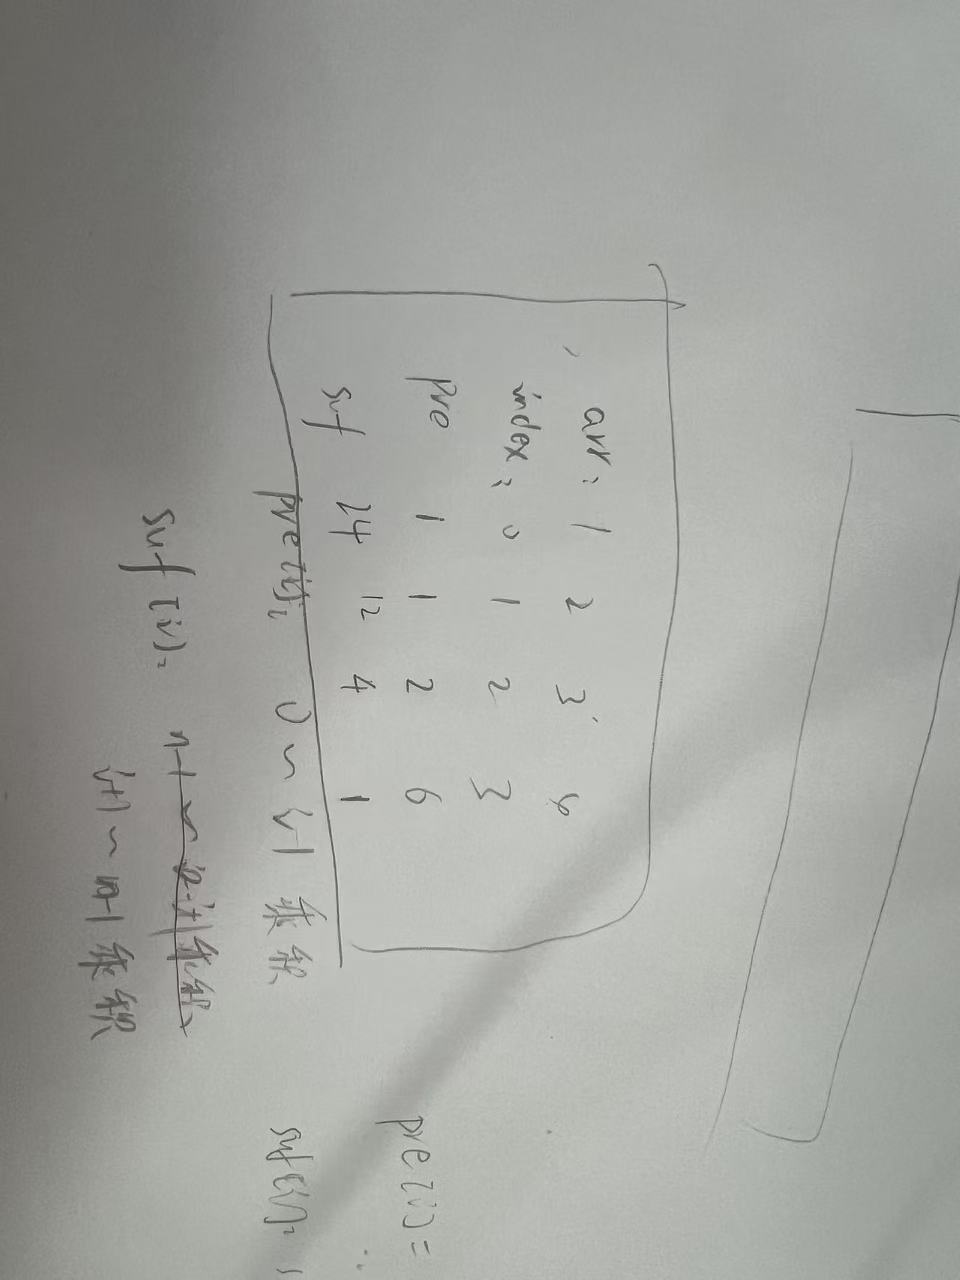 arr: 1 2 3 4
index: 0 1 2 3
pre 1 1 2 6
suf 24 12 4 1
pre[i]: 0 ~ i-1 乘积
suf[i]: n-1 ~ i+1 乘积
i+1 ~ n-1 乘积
pre[i] =
suf[i]: